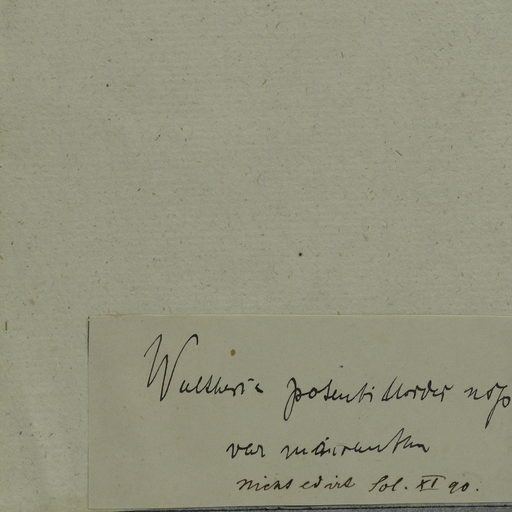 Waltheria potentilloides
var macrantha
nicht edirt Sol. XI 90.